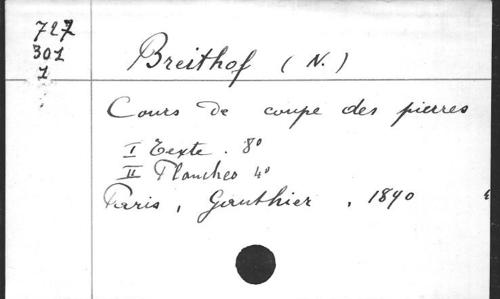 727
301
1
Breithof (N.)
Cours de coupe des pierres
I Texte. 8°
II Planches 4°
Paris, Gauthier, 1890